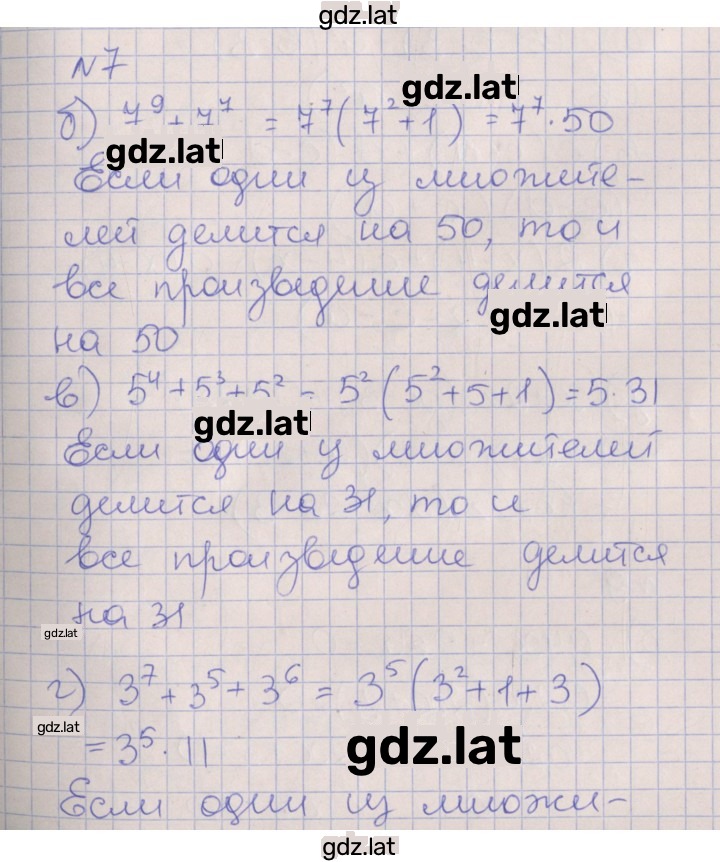 gdz.lat
N7
gdz.lat
б) 7⁹ + 7⁷ = 7⁷(7²+1) = 7⁷·50
gdz.lat
Если один из множите-
лей делится на 50, то и
все произведение делится
gdz.lat
на 50
в) 5⁴ + 5³ + 5² = 5²(5²+5+1) = 5·31
gdz.lat
Если один из множителей
делится на 31, то и
все произведение делится
на 31
gdz.lat
г) 3⁷ + 3⁵ + 3⁶ = 3⁵(3²+1+3)
gdz.lat
= 3⁵·11
gdz.lat
Если один из множи-
gdz.lat